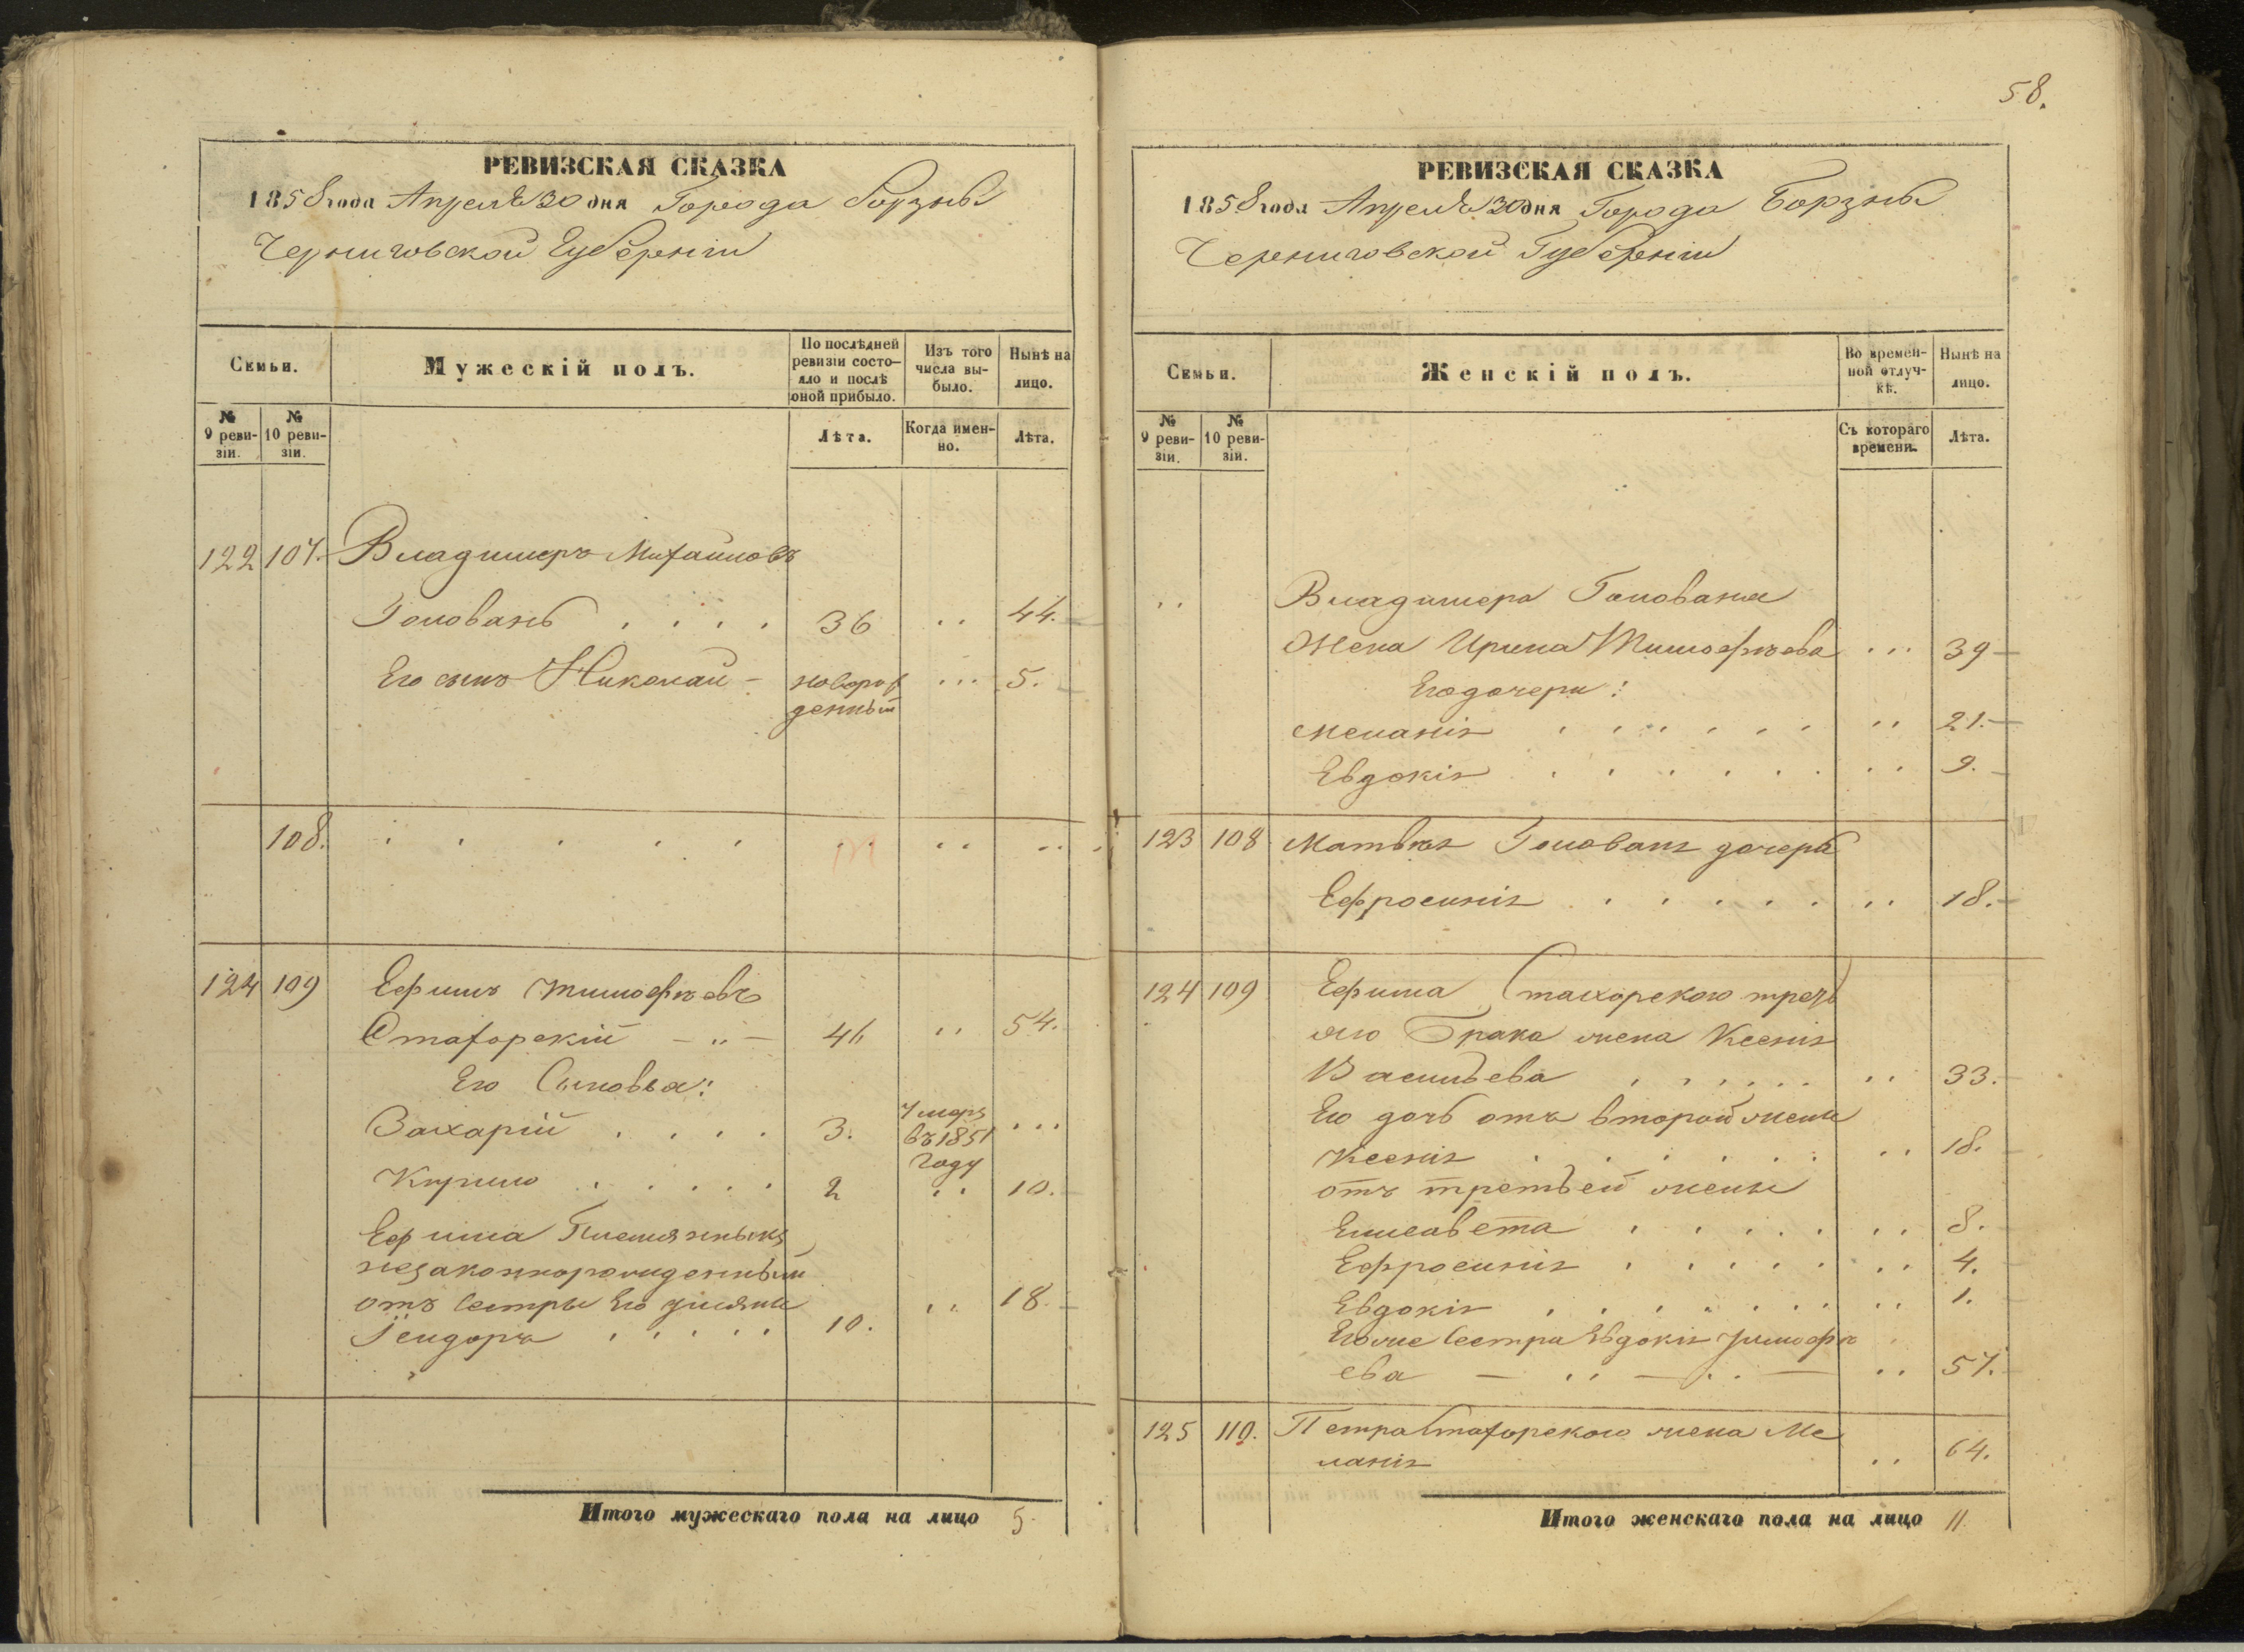 РЕВИЗСКАЯ СКАЗКА
1858 года Апреля 30 дня Города Борзны
Черниговской Губерніи
Семьи.
Мужескій полъ.
По послѣдней ревизіи состо-
яло и послѣ
оной прибыло.
Изъ того
числа вы-
было.
Нынѣ на
лицо.
№
9 реви-
зіи.
№
10 реви-
зіи.
Лѣта.
Когда имен-
но.
Лѣта.
122 107. Владимеръ Михайловъ
Головань . . . . 36 .. 44.
Его сынъ Николай - новорож
денный ... 5.
108. . . . . . .. .. ..
124 109 Ефимъ Тимофѣевъ
Стахорскій — „ — 46 .. 54.
Его Сыновья:
Захарій . . . . 3. умеръ
въ 1851
году ...
Кирило . . . . . 2 .. 10.
Ефима Племянныкъ
незаконнорожденный
отъ Сестры Его
Ісидоръ . . . . . 10. .. 18.
Итого мужескаго пола на лицо 5.
58.
РЕВИЗСКАЯ СКАЗКА
1858 года Апреля 30 дня Города Борзны
Черниговской Губерніи
Семьи.
Женскій полъ.
Во времен-
ной отлуч-
кѣ.
Нынѣ на
лицо.
№
9 реви-
зіи.
№
10 реви-
зіи.
Съ котораго
времени.
Лѣта.
.. Владимера Голованя
Жена Ирина Тимофѣева ... 39
Его дочери:
Меланія . . . . . . .. 21.
Евдокія . . . . . . .. 9.
123 108 Матвѣя Голованя дочерь
Ефросинія . . . . . .. 18.
124 109 Ефима Стахорского треть
яго Брака жена Ксенія
Васильева . . . . . .. 33.
Его дочь отъ второй жены
Ксенія . . . . . . .. 18.
отъ третьей жены
Елисавета . . . . . .. 8.
Ефросинія . . . . . .. 4.
Евдокія . . . . . . .. 1.
Егоже Сестра Евдокія Тимофѣ
ева — .. — .. — .. 57.
125 110. Петра Стахорского жена Ме
ланія .. 64.
Итого женскаго пола на лицо 11.